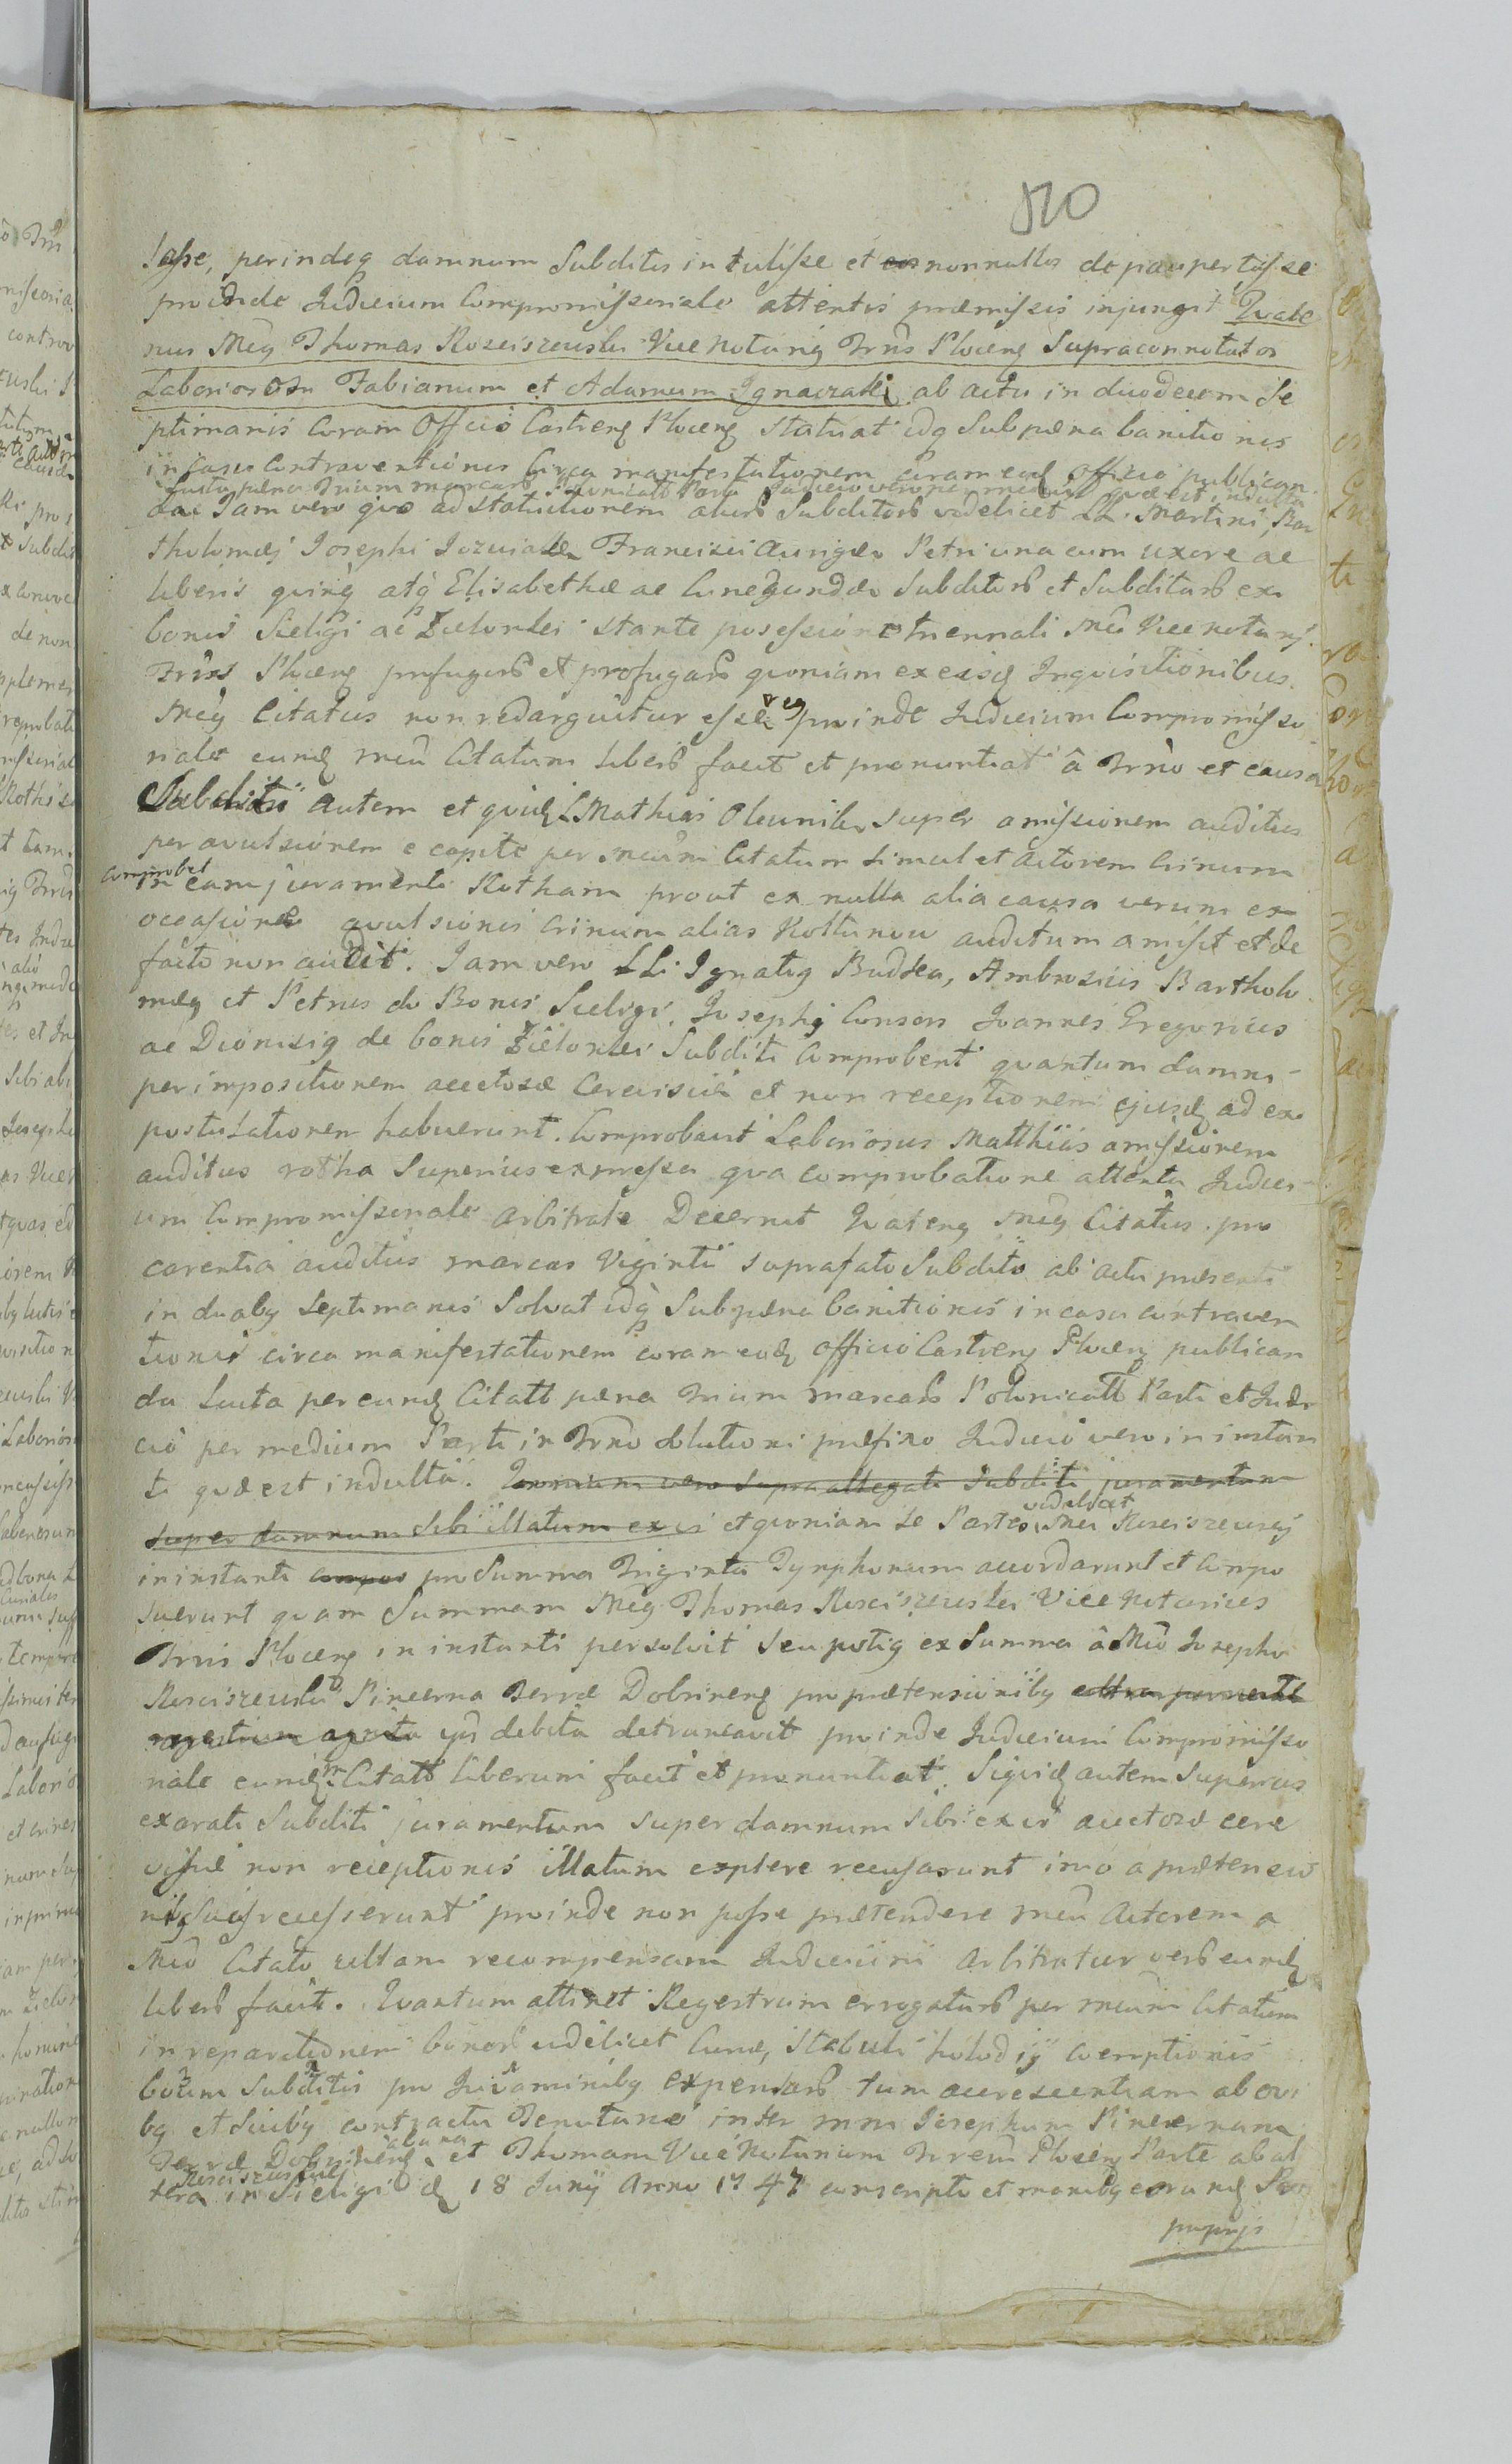 510
sasse, perindeq damnum Subditis intulisse et eos nonnullos depaupertasse
proinde Judicium Compromissoriale attentis præmissis injungit Quate
nus Meg Thomas Rosciszewski Vice Notarig Trris Plocen Supraconnotatos
Laboriosos Fabianum et Adamum Ignaczaki ab actu in duodecem Se
ptimanis Coram Officio Castren Plocen Statuat idq Sub pæna banitionis
in casu Contraventionis Circa manifestationem coram eod Officio publican
Lucta pæna trium marcarum Polonicall Parti Judicio vero per medium quæ est indulta
dac Jam vero quo ad statuitionem aliorum Subditorum videlicet LL. Martini, Bar
tholomæj Josephi Jozwiak Francisci Aurigæ Petri una cum uxore ac
liberis quinq atq Elisabethæ ac Cunegundæ Subditorum et Subditarum ex
bonis Sieligi ac Zielonki stante possessione triennali Mci Vice notarij
Trris Plocen profugorum et profugarum quoniam ex eisd Inquisitionibus
Meg Citatus non redarguitur esse reg proinde Judicium Compromisso
riale eund Mcum Citatum liberum facit et pronuntiat â Trno et causa
Subditi autem et quid L Mathias Oleunik super amissionem auditus
per avulsionem e capite per Mcum Citatum simul et Actorem Crinum
comprobet
in eam juramenti Rotham prout ex nulla alia causa verum ex
occasione avulsionis Crinum alias Kołtunow auditum amisit et de
facto non audit. Jam vero LLi Ignatig Budka, Ambrosius Bartholo
mæg et Petrus de Bonis Sieligi, Josephj Consors Joannes Gregorius
ac Dionisig de bonis Zielonki Subditi Comprobent quantum damni
per impositionem acetosæ Cerevisiæ et non receptionem ejusd ad ex
postulationem habuerunt. Comprobavit Laboriosus Matthias amissionem
auditus rotha Superius expressa qua comprobatione attenta Judici
um Compromissoriale arbitrale Decernit Quateng Meg Citatus pro
carentia auditus marcas Viginti suprafato Subdito ab actu præsenti
in duabg Septimanis Solvat idq Sub pæna banitionis in casu contraven
tionis circa manifestationem coram eod Officio Castren Plocen publican
da Lucta per eund Citatt pæna trium marcarum Polonicall Parti et Judi
cio per medium Parti in Trno Solutioni præfixo Judicio vero in instan
ti quæ est indulta. Quoniam vero supra allegati Subditi juramentum
super damnum sibi illatum ex is et quoniam Se Partes videlicet Mci Rosciszewscij
in instanti compos pro Summa Triginta Tynphonum accordarunt et Compo
suerunt quam Summam Meg Thomas Rosciszewski Vice Notarius
Trris Plocen in instanti persolvit seu potig ex Summa â Mco Josepho
Rosciszewski Pincerna Terræ Dobrinen pro prætensionibg
debita detruncavit proinde Judicium Compromisso
riale eund Citatt liberum facit et pronuntiat. Siquid autem Superius
exarati Subditi juramentum super damnum sibi ex is acetosæ cere
visiæ non receptionis illatum explere recusarunt imo a prætensio
nibg suis recesserunt proinde non posse prætendere Mcum Actorem a
Mco Citato ullam recompensam Judicium Arbitratur verum eund
liberum facit. Quantum attinet Regestrum erogatorum per Mcum Citatum
in reparationem bonorum videlicet Curiæ, Stabuli holodij coemptionis
boum Subditis pro Juvaminibg expensarum tum accrescentiam ab ovi
bg et Suibg contractu Tenutario inter Mm Josephum Pincernam
Terræ Dobrinen ab una et Thomam Vice Notarium Trrem Plocen Parte ab al
Rosciszewskie
tera in Sieligi d 18 Junij Anno 1747 conscripto et manibg eorund Par
proprijs